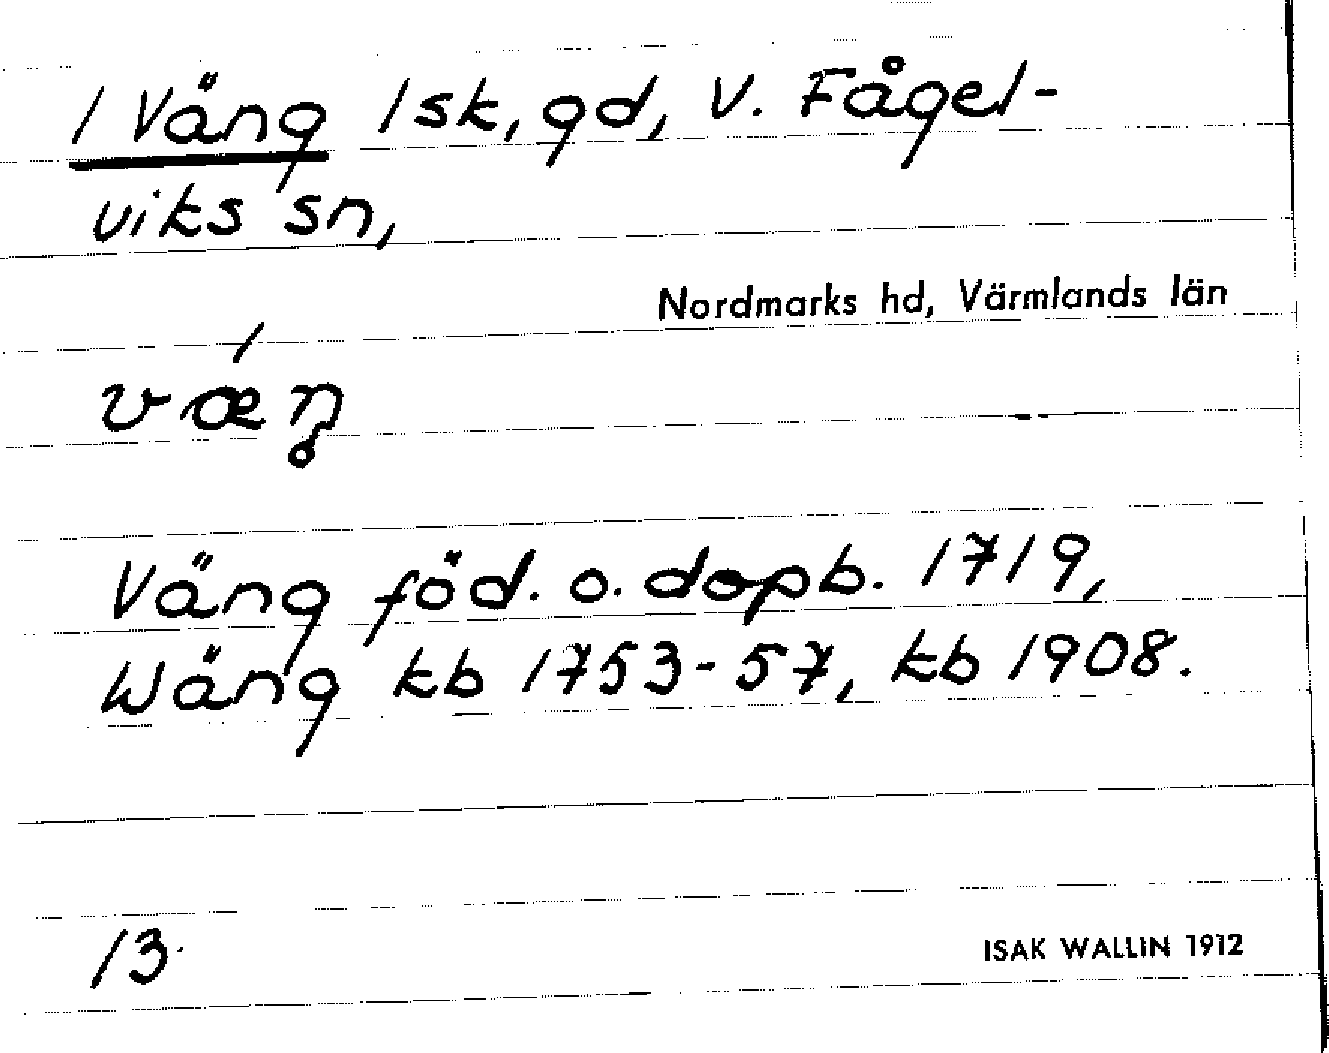 1 Väng 1sk, gd, V. Fågel-
viks sn,
Nordmarks hd, Värmlands län
væ̀ŋ
Väng föd. o. dopb. 1719,
Wäng kb 1753-57, kb 1908.
13.
ISAK WALLIN 1912